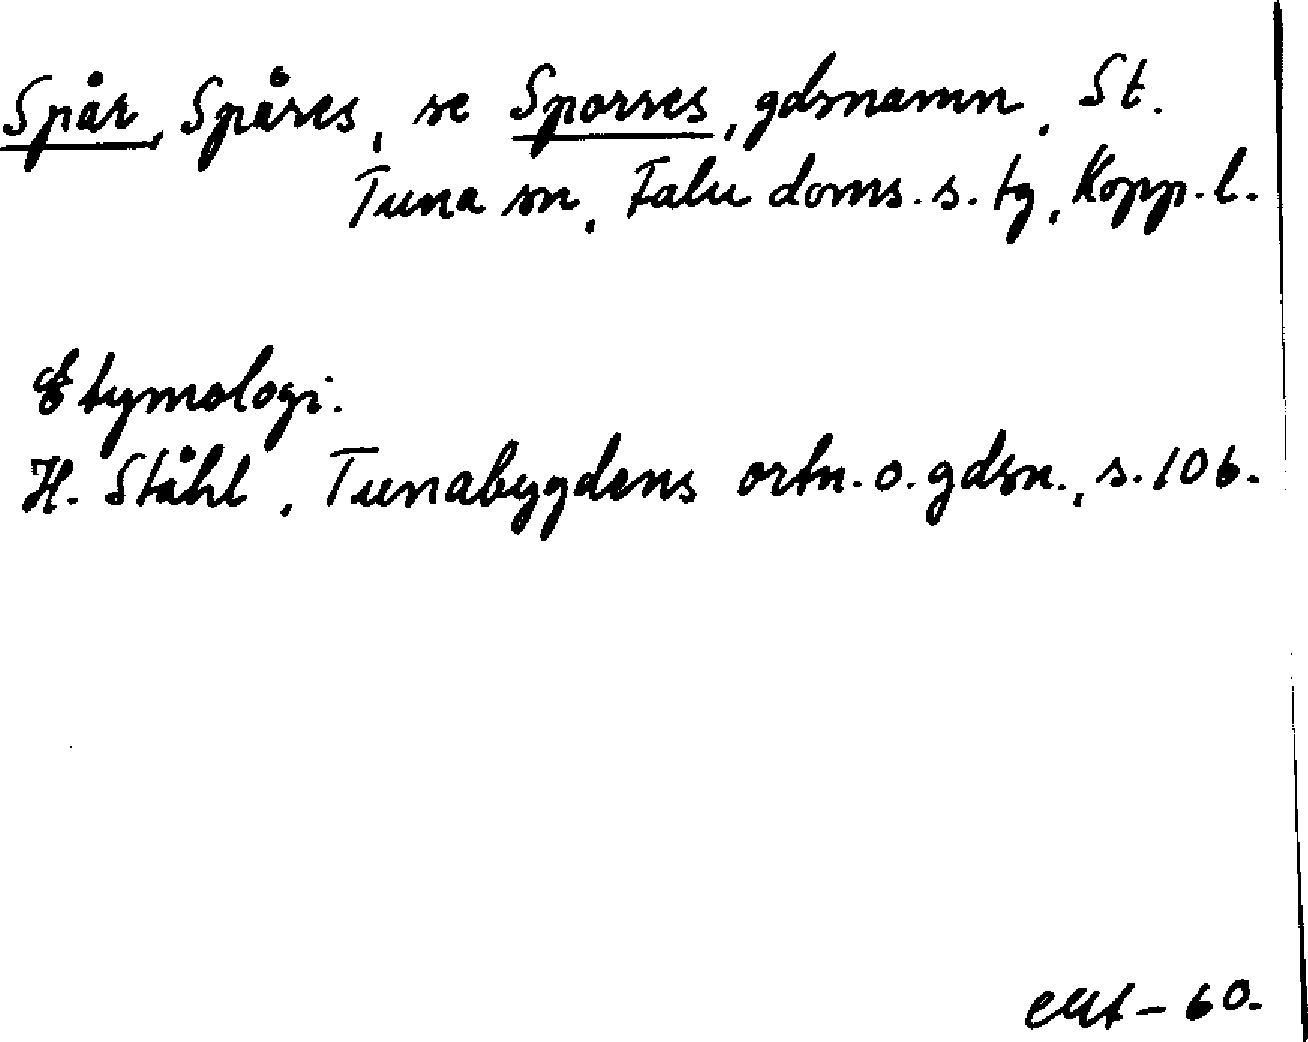 Spår, Spåres, se Sporres, gdsnamn, St.
Tuna sn, Falu doms. s. tg, Kopp. l.
Etymologi.
H. Ståhl, Tunabygdens ortn. o. gdsn., s. 106.
60.